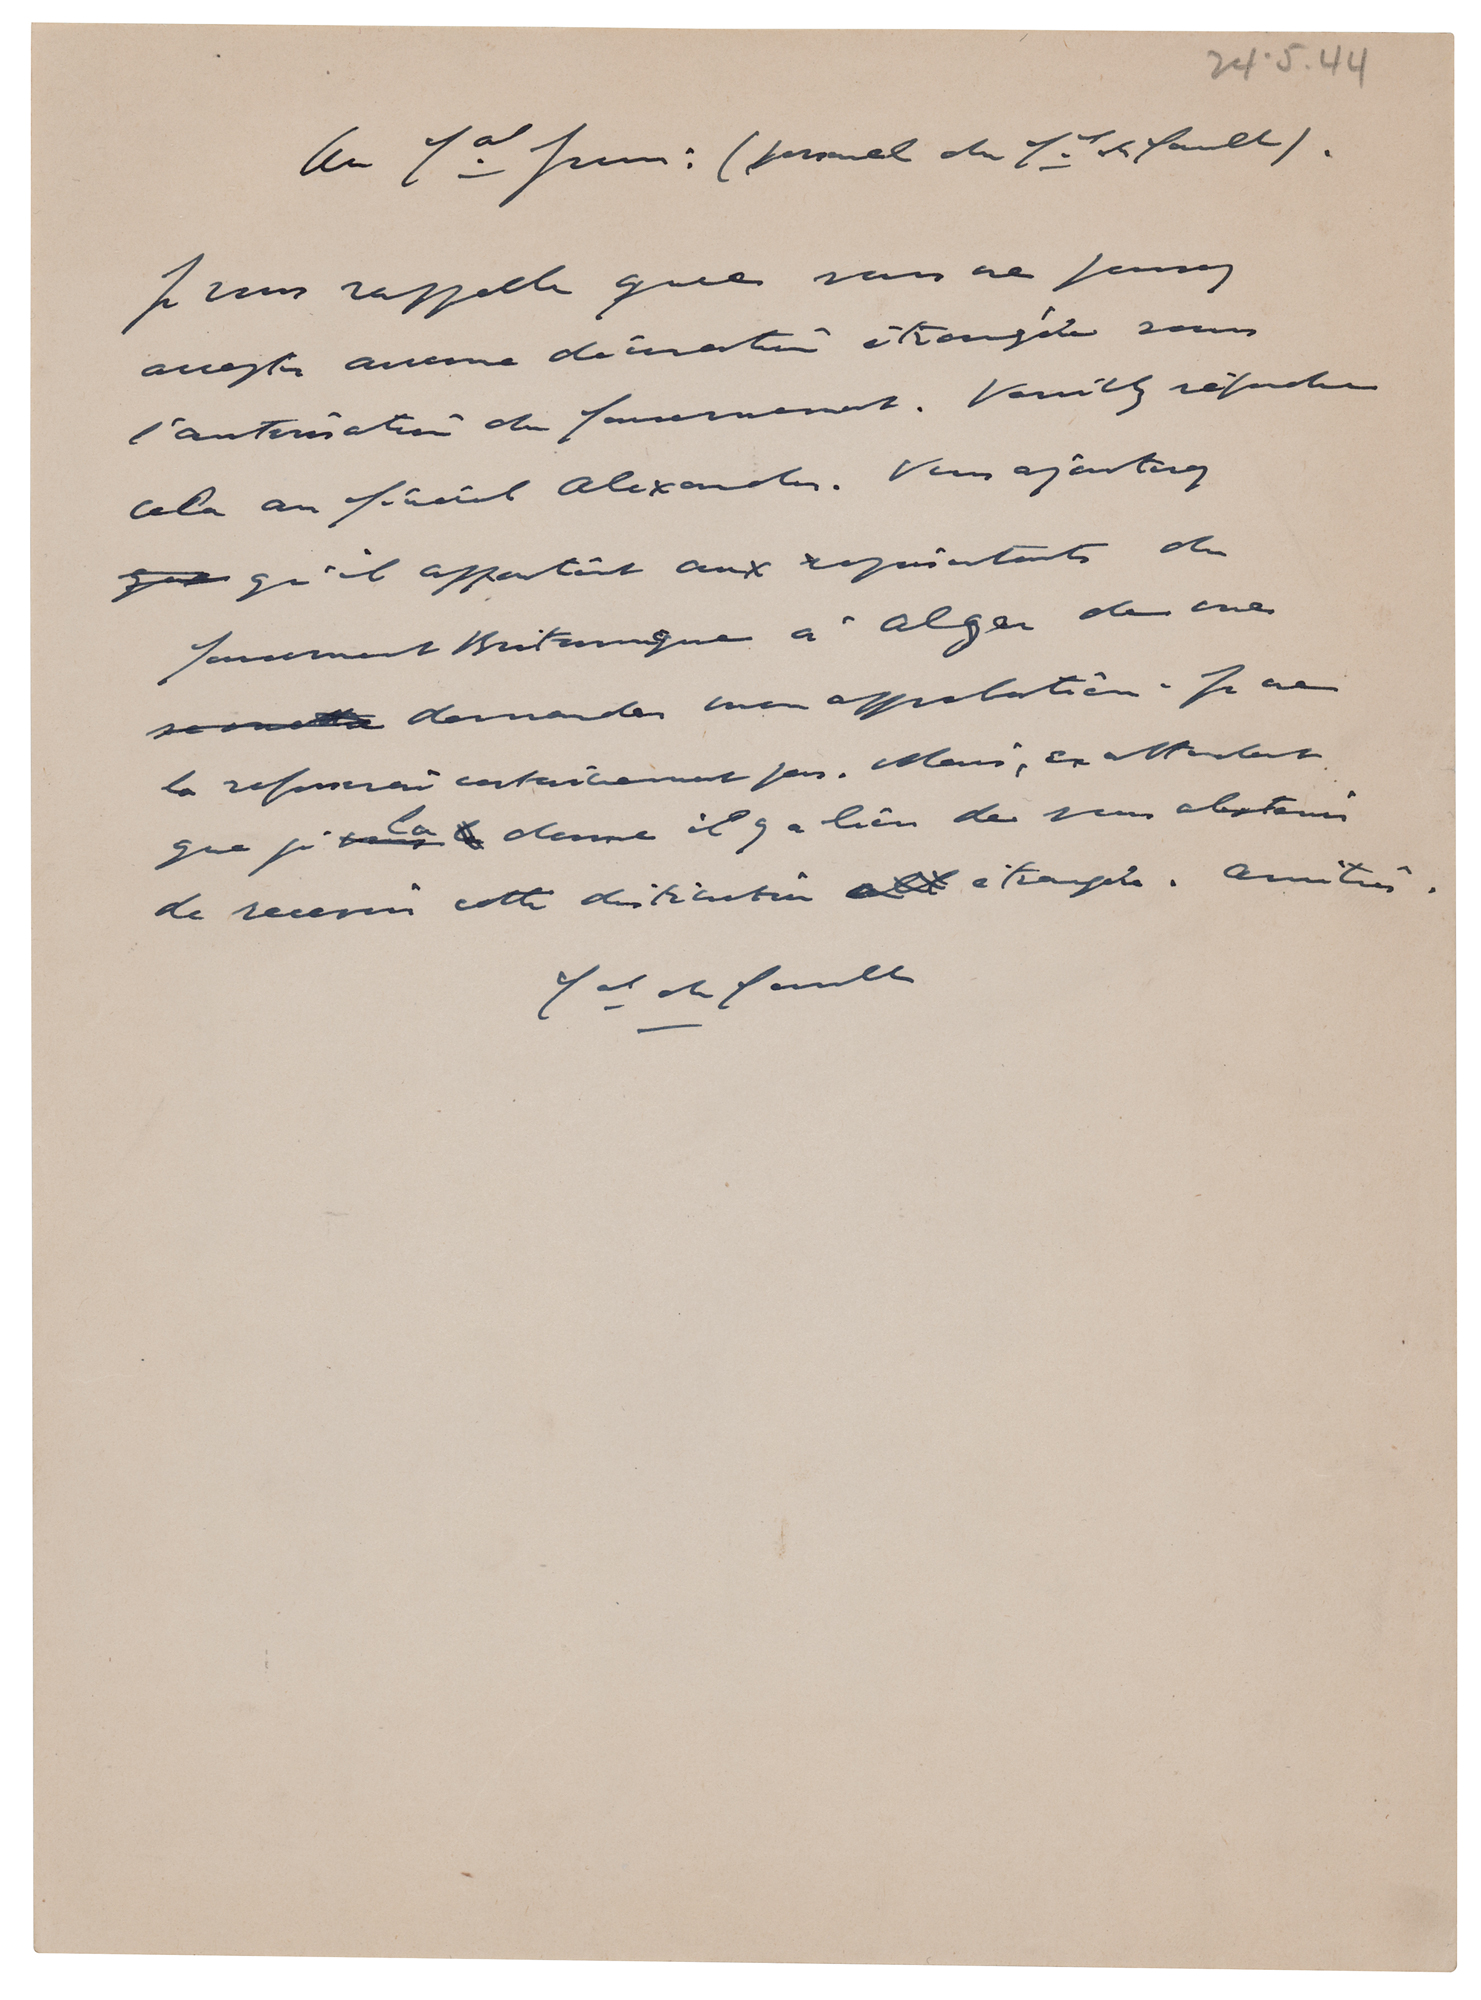 24.5.44
Au Gal Juin : (personnel du Gal de Gaulle).
Je vous rappelle que vous ne pouvez
accepter aucune décoration étrangère sans
l'autorisation du Gouvernement. Veuillez répondre
cela au Général Alexander. Vous ajouterez
que qu'il appartient aux représentants du
Gouvernement Britannique à Alger de me
soumettre demander mon approbation. Je ne
la refuserai certainement pas. Mais, en attendant
que je vous la donne il y a lieu de vous abstenir
de recevoir cette distinction étrangère. Amitiés.
Gal de Gaulle